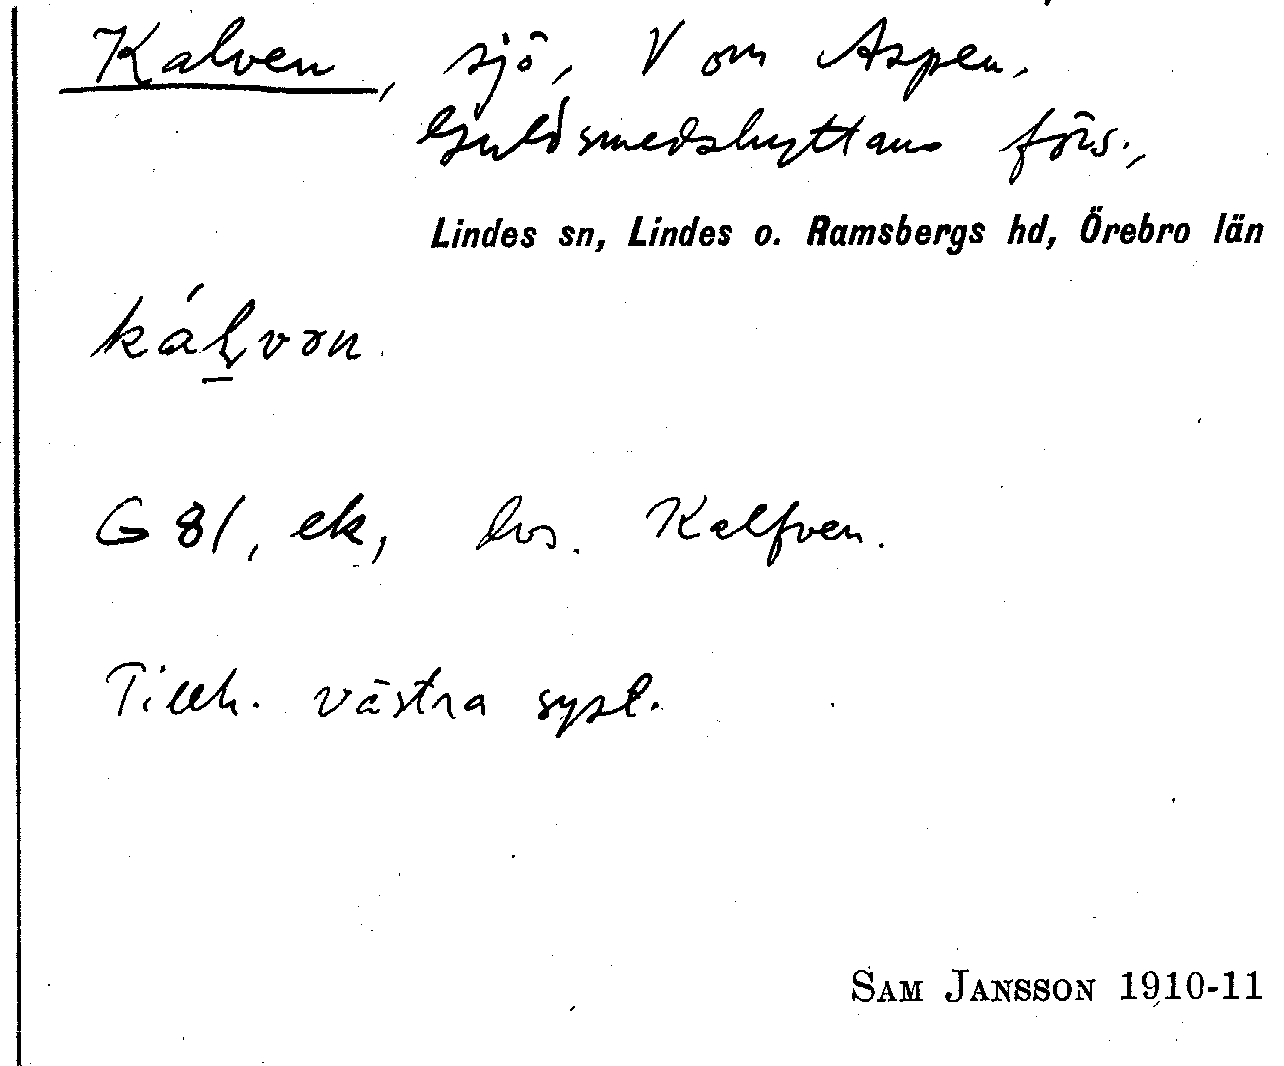 Kalven, sjö, V om Aspen.
Guldsmedshyttans förs.,
Lindes sn, Lindes o. Ramsbergs hd, Örebro län
káḻvən.
G 81, ek, hos. Kalfven.
Tillh. västra syst.
SAM JANSSON 1910-11